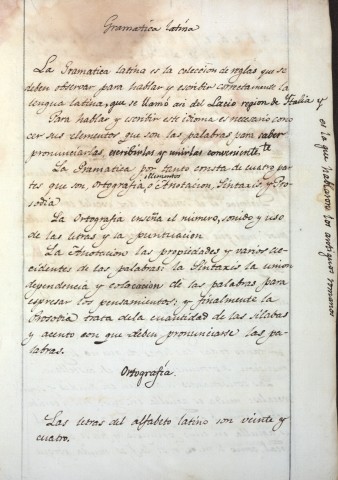 Gramatica latina
La Gramatica latina es la coleccion de reglas que se
deben observar para hablar y escribir correctamente la
lengua latina, que se llamó asi del Lacio region de Italia y
es la que hablaron los antiguos romanos
Para hablar y escribir este idioma es necesario cono
cer sus elementos que son las palabras para saber
pronunciarlas, escribirlas y unirlas convenientete
La Gramatica, por tanto consta de cuatro par
elementos
tes que son ortografía, o Anotacion, Sintaxis y Pro-
sodia
La Ortografía enseña el número, sonido y uso
de las letras y la puntuacion
La Anotacion las propiedades y varios ac-
cidentes de las palabras: la Sintaxis la union
dependencia y colocacion de las palabras para
espresar los pensamientos; y finalmente la
Prosodia trata de la cuantidad de las sílabas
y acento con que deben pronunciarse las pa-
labras.
Ortografía.
Las letras del alfabeto latino son veinte y
cuatro.